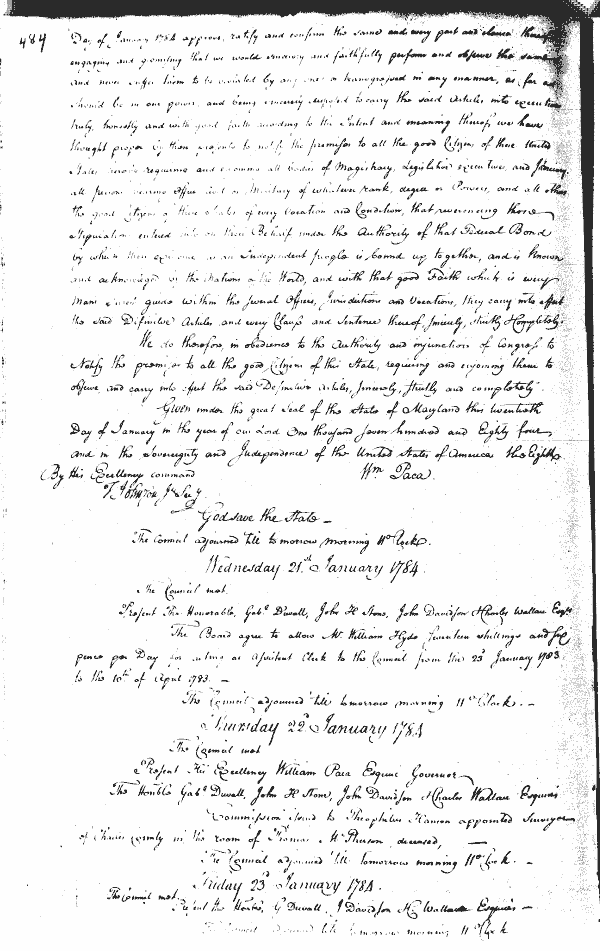 484
Day of January 1784 approve, ratify and confirm the same and every part and clause thereof
engaging and promising that we would sincerely and faithfully perform and observe the same
and never suffer them to be violated by any one or transgressed in any manner, as far as
should be in our power, and being sincerely disposed to carry the said Articles into execution
truly, honestly and with good faith according to the Intent and meaning thereof we have
thought proper by these presents to notify the premises to all the good Citizens of these United
States hereby requiring and enjoining all bodies of Magistracy, Legislative executive, and judiciary
all persons bearing Office civil or Military of whatever rank, degree or Powers, and all others
the good Citizens of these States of every Vocation and Condition, that reverencing those
Stipulations entered into on their Behalf under the Authority of that Federal Bond
by which their existence as an Independent people is bound up together, and is known
and acknowledged by the Nations of the World, and with that good Faith which is every
mans surest guide within the several Offices, Jurisdictions and Vocations, they carry into effect
the said Definitive Articles and every Clause and Sentence thereof, sincerely, strictly & Completely.
We do therefore, in obedience to the Authority and injunction of Congress to
Notify the premises to all the good Citizens of this State, requiring and enjoining them to
observe and carry into effect the said Definitive Articles, sincerely, strictly and completely.
Given under the great Seal of the State of Maryland this twentieth
Day of January in the year of our Lord One thousand seven hundred and Eighty four,
and in the Sovereignty and Independence of the United States of America the Eighth
By His Excellency command Wm Paca.
T. Johnson Jr Secy.
God save the State —
The Council adjourned till tomorrow morning 11 o'Clock.
Wednesday 21st January 1784.
The Council met.
Present The Honorable, Gabl Duvall, John H Stone, John Davidson & Charles Wallace Esqrs
The Board agree to allow Mr William Hyde seventeen shillings and six
pence per Day for acting as Assistant Clerk to the Council from the 23d January 1783
to the 10th of April 1783. —
The Council adjourned till tomorrow morning 11 o'Clock. —
Thursday 22d January 1784
The Council met
Present His Excellency William Paca Esquire Governor
The Honble Gabl Duvall, John H Stone, John Davidson & Charles Wallace Esquires
Commission issued to Theophilus Hanson appointed Surveyor
of Charles County in the room of Thomas McPherson, deceased, —
The Council adjourned till tomorrow morning 11 o'Clock. —
Friday 23d January 1784.
The Council met.
Present the Honble, G Duvall, J Davidson & C Wallace Esquires —
The Council adjourned till tomorrow morning 11 o'Clock